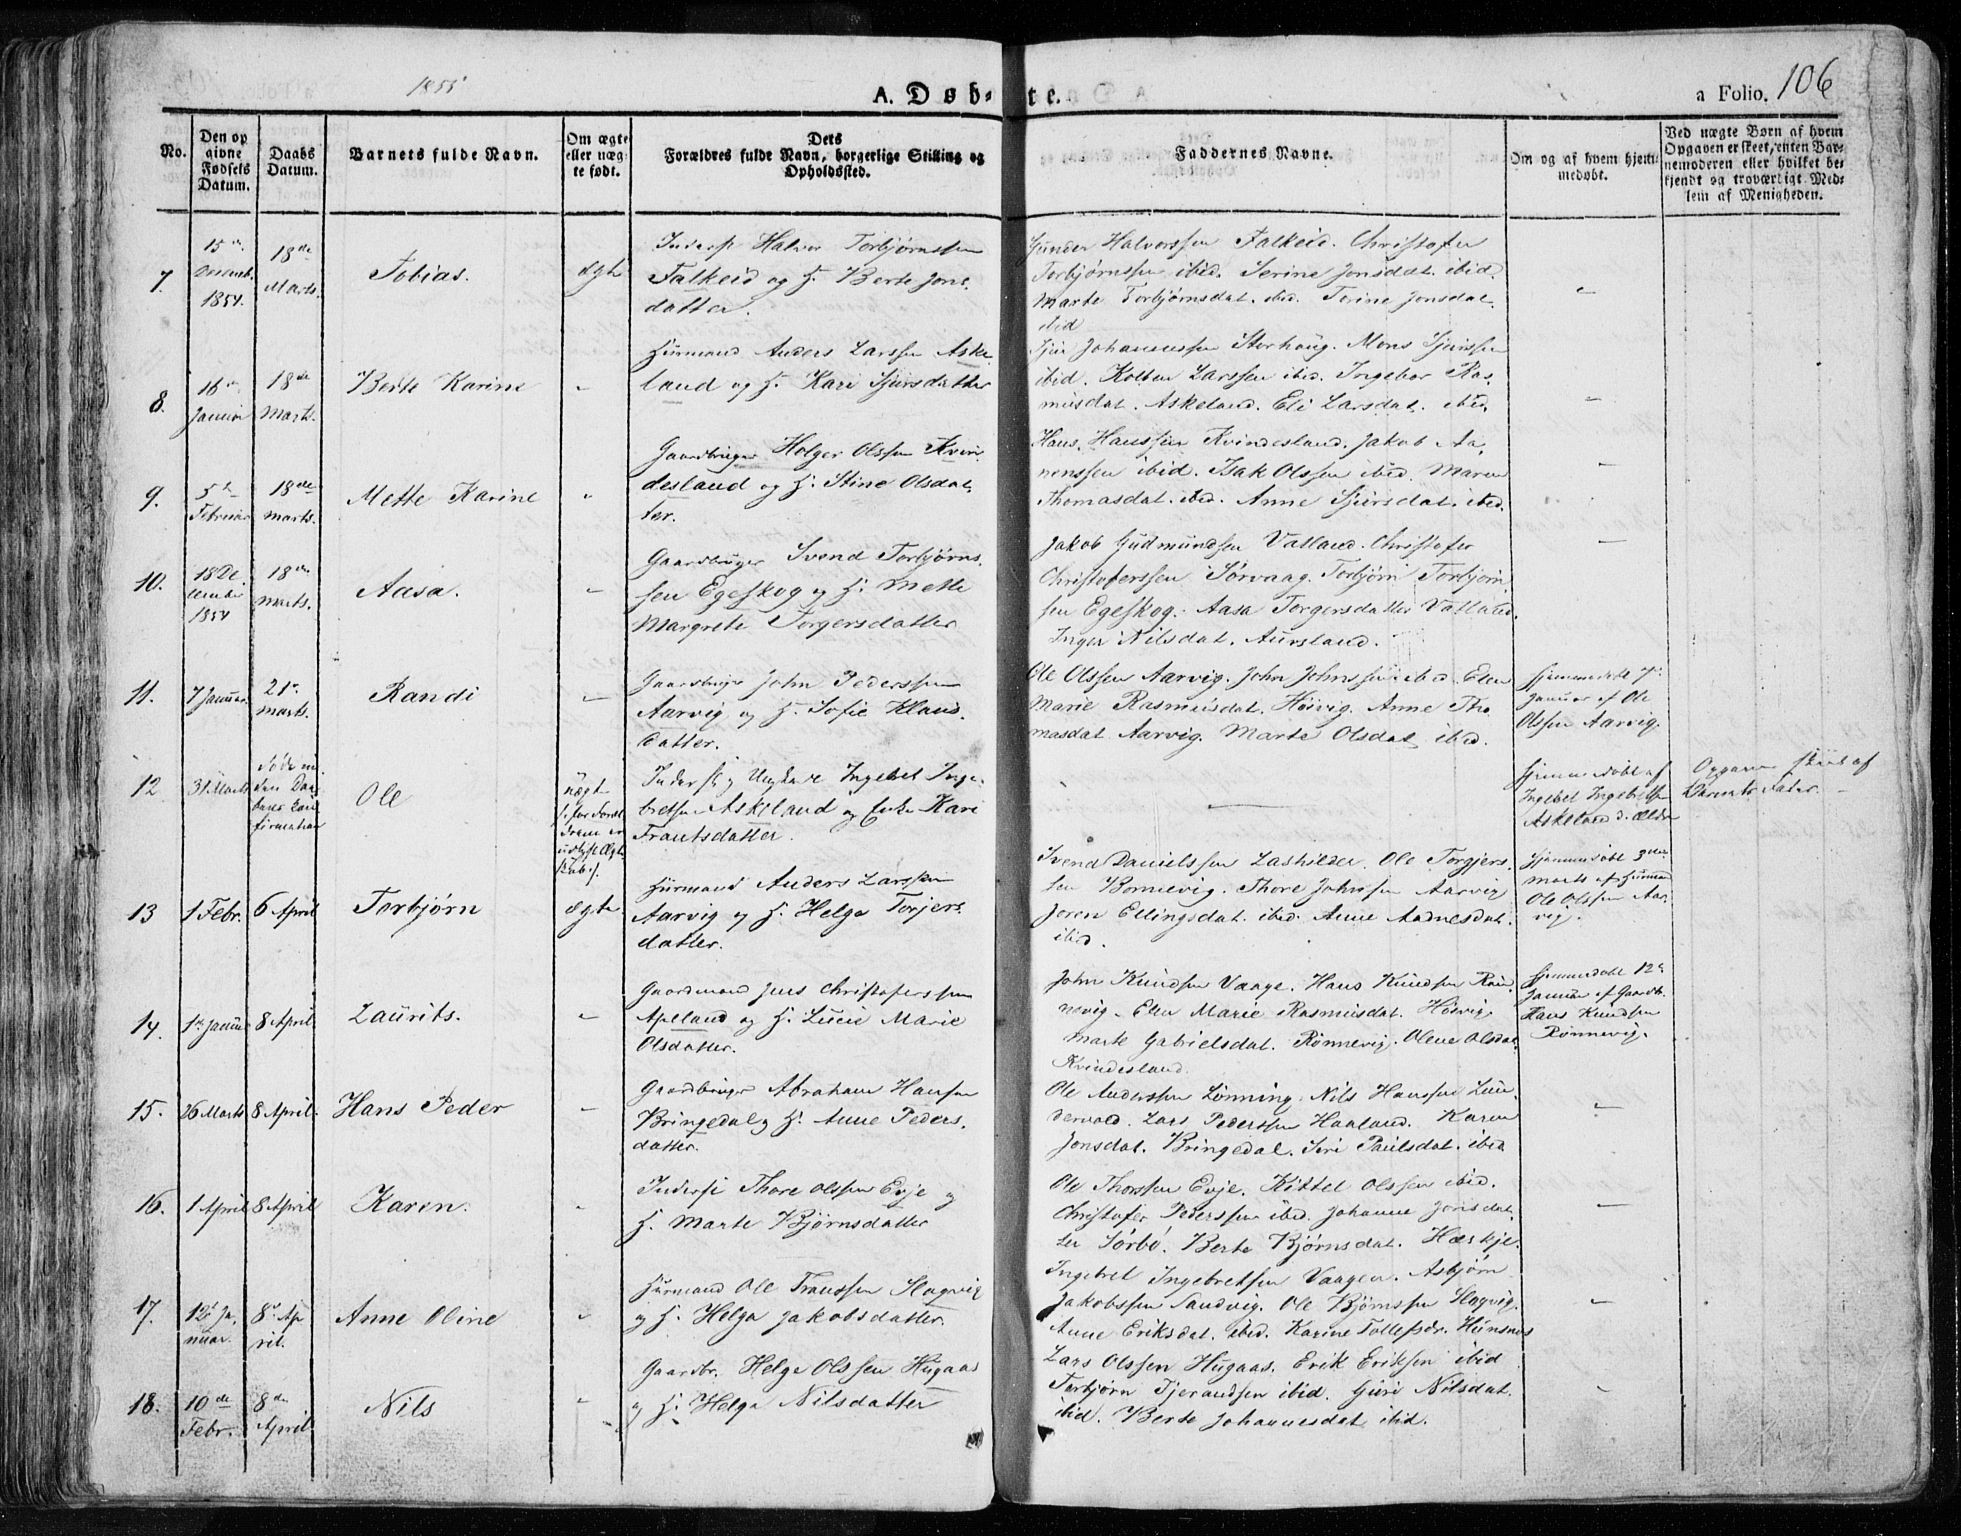 1855
A. Døb-te.
a Folio. 106
No.
Den op
givne
Fødsels
Datum.
Daabs
Datum.
Barnets fulde Navn.
Om ægte
eller uæg-
te født.
Dets
Forældres fulde Navn, borgerlige Stilling og
Opholdssted.
Faddernes Navne.
Om og af hvem hjem-
medøbt.
Ved uægte Børn af hvem
Opgaven er skeet, enten Bar-
nemoderen eller hvilket be-
kjendt og troværdigt Med-
lem af Menigheden.
7.
15de
1854.
18de
Marts.
Tobias.
ægte
Inderst Halvor Torbjørnssen
Falkeid og H. Berte Jons-
datter.
Gunder Halvorssen Falkeid. Christofer
Torbjørnssen ibid. Serine Jonsdat. ibid.
Marte Torbjørnsdat. ibid. Torine Jonsdat.
ibid
8.
16de
Januar
18de
Marts.
Berte Karine
Huusmand Anders Larssen Aske-
land og H. Kari Sjursdatter
Sjur Johannessen Storhaug. Mons Sjurssen
ibid. Kolben Larssen ibid. Ingebor Ras-
musdat. Askeland. Eli Larsdat. ibid.
9.
5te
Februar
18de
Marts.
Mette Karine
Gaardbruger Holger Olssen Kvin-
desland og H. Stine Olsdat-
ter.
Hans Hanssen Kvindesland. Jakob Aa-
nenssen ibid. Isak Olssen ibid. Maren
Thomasdat. ibid. Anne Sjursdat. ibid.
10.
18 De-
cember
1854
18de
Marts.
Aasa.
Gaardbruger Svend Torbjørns-
sen Egeskog og H. Mette
Margrete Torgersdatter
Jakob Gudmundsen Valland. Christofer
Christoferssen Sørvaag. Torbjørn Torbjørn-
sen Egeskog. Aasa Torgersdatter Valland
Inger Nilsdat. Aursland.
11.
7 Januar
21de
Marts.
Randi
Gaardbruger John Pederssen
Aarvig og H. Sofie Klaus-
datter.
Ole Olssen Aarvig. John Johnssen ibid. Elen
Marie Rasmusdat. Høivig. Anne Tho-
masdat. Aarvig. Marte Olsdat. ibid.
Hjemmedøbt 7de
Januar af Ole
Olssen Aarvig.
12
31 Marts
Døde in-
den Daa-
bens Con-
firmation
Ole
uægte
(: for Foræl-
drene er
udlyst Ægte-
skab :)
Inderst og Ungkarl Ingebret Inge-
bretsen Askeland og Enke Kari
Frantsdatter.
Hjemmedøbt af
Ingebret Ingebretsen
Askeland d. Ældre
Opgaven skeet af
Barnets Fader.
13
1 Febr.
6 April
Torbjørn
ægte
Huusmand Anders Larssen
Aarvig og H. Helga Torjers-
datter.
Svend Danielssen Lashilder. Ole Torgjers-
sen Bornevig. Thore Johnsen Aarvig
Joren Ellingsdat. ibid. Anne Aadnesdat.
ibid.
Hjemmedøbt 3die
Marts af Huusmand
Ole Olssen Aar-
vig.
14.
1ste Januar
8 April
Laurits.
Gaardmand Jens Christoferssen
Apelland og H. Lucie Marie
Olsdatter.
John Knudsen Vaage. Hans Knudsen Røn-
nevig. Elen Marie Rasmusdat. Høivig
Marte Gabrielsdat. Rønnevig. Olene Olsdat.
Kvindesland.
Hjemmedøbt 12te
Januar af Gaardb.
Hans Knudsen
Rønnevig.
15.
26 Marts
8 April.
Hans Peder
Gaardbruger Abraham Hansen
Bringedal og H. Anne Peders-
datter.
Ole Anderssen Lønning. Nils Hanssen Lun-
dervold. Lars Pederssen Haaland. Karen
Jonsdat. Bringedal. Siri Paulsdat. ibid
16.
1 April
8 April
Karen.
Inderst Thore Olssen Eeje og
H. Marte Bjørnsdatter
Ole Thorssen Eeje. Kittel Olssen ibid.
Christofer Pederssen ibid. Johanne Jonsdat-
ter Sørbø. Berte Bjørnsdat. Heskje.
17.
12te Ja-
nuar.
8de Ap-
ril.
Anne Oline
Huusmand Ole Franssen Hagvig
og H. Helga Jakobsdatter.
Ingebret Ingebretsen Vaagen. Asbjørn
Jakobssen Sandvig. Ole Bjørnssen Hagvig.
Anne Eriksdat. ibid. Karine Tollefsdr. Hunsnes
18.
10de
Febr.
8de
April
Nils
Gaardbr. Helge Olssen Hugaas
og H. Helga Nilsdatter
Lars Olssen Hugaas. Erik Eriksen ibid
Torbjørn Tjerandsen ibid. Guri Nilsdat.
ibid. Berte Johannesdat. ibid.